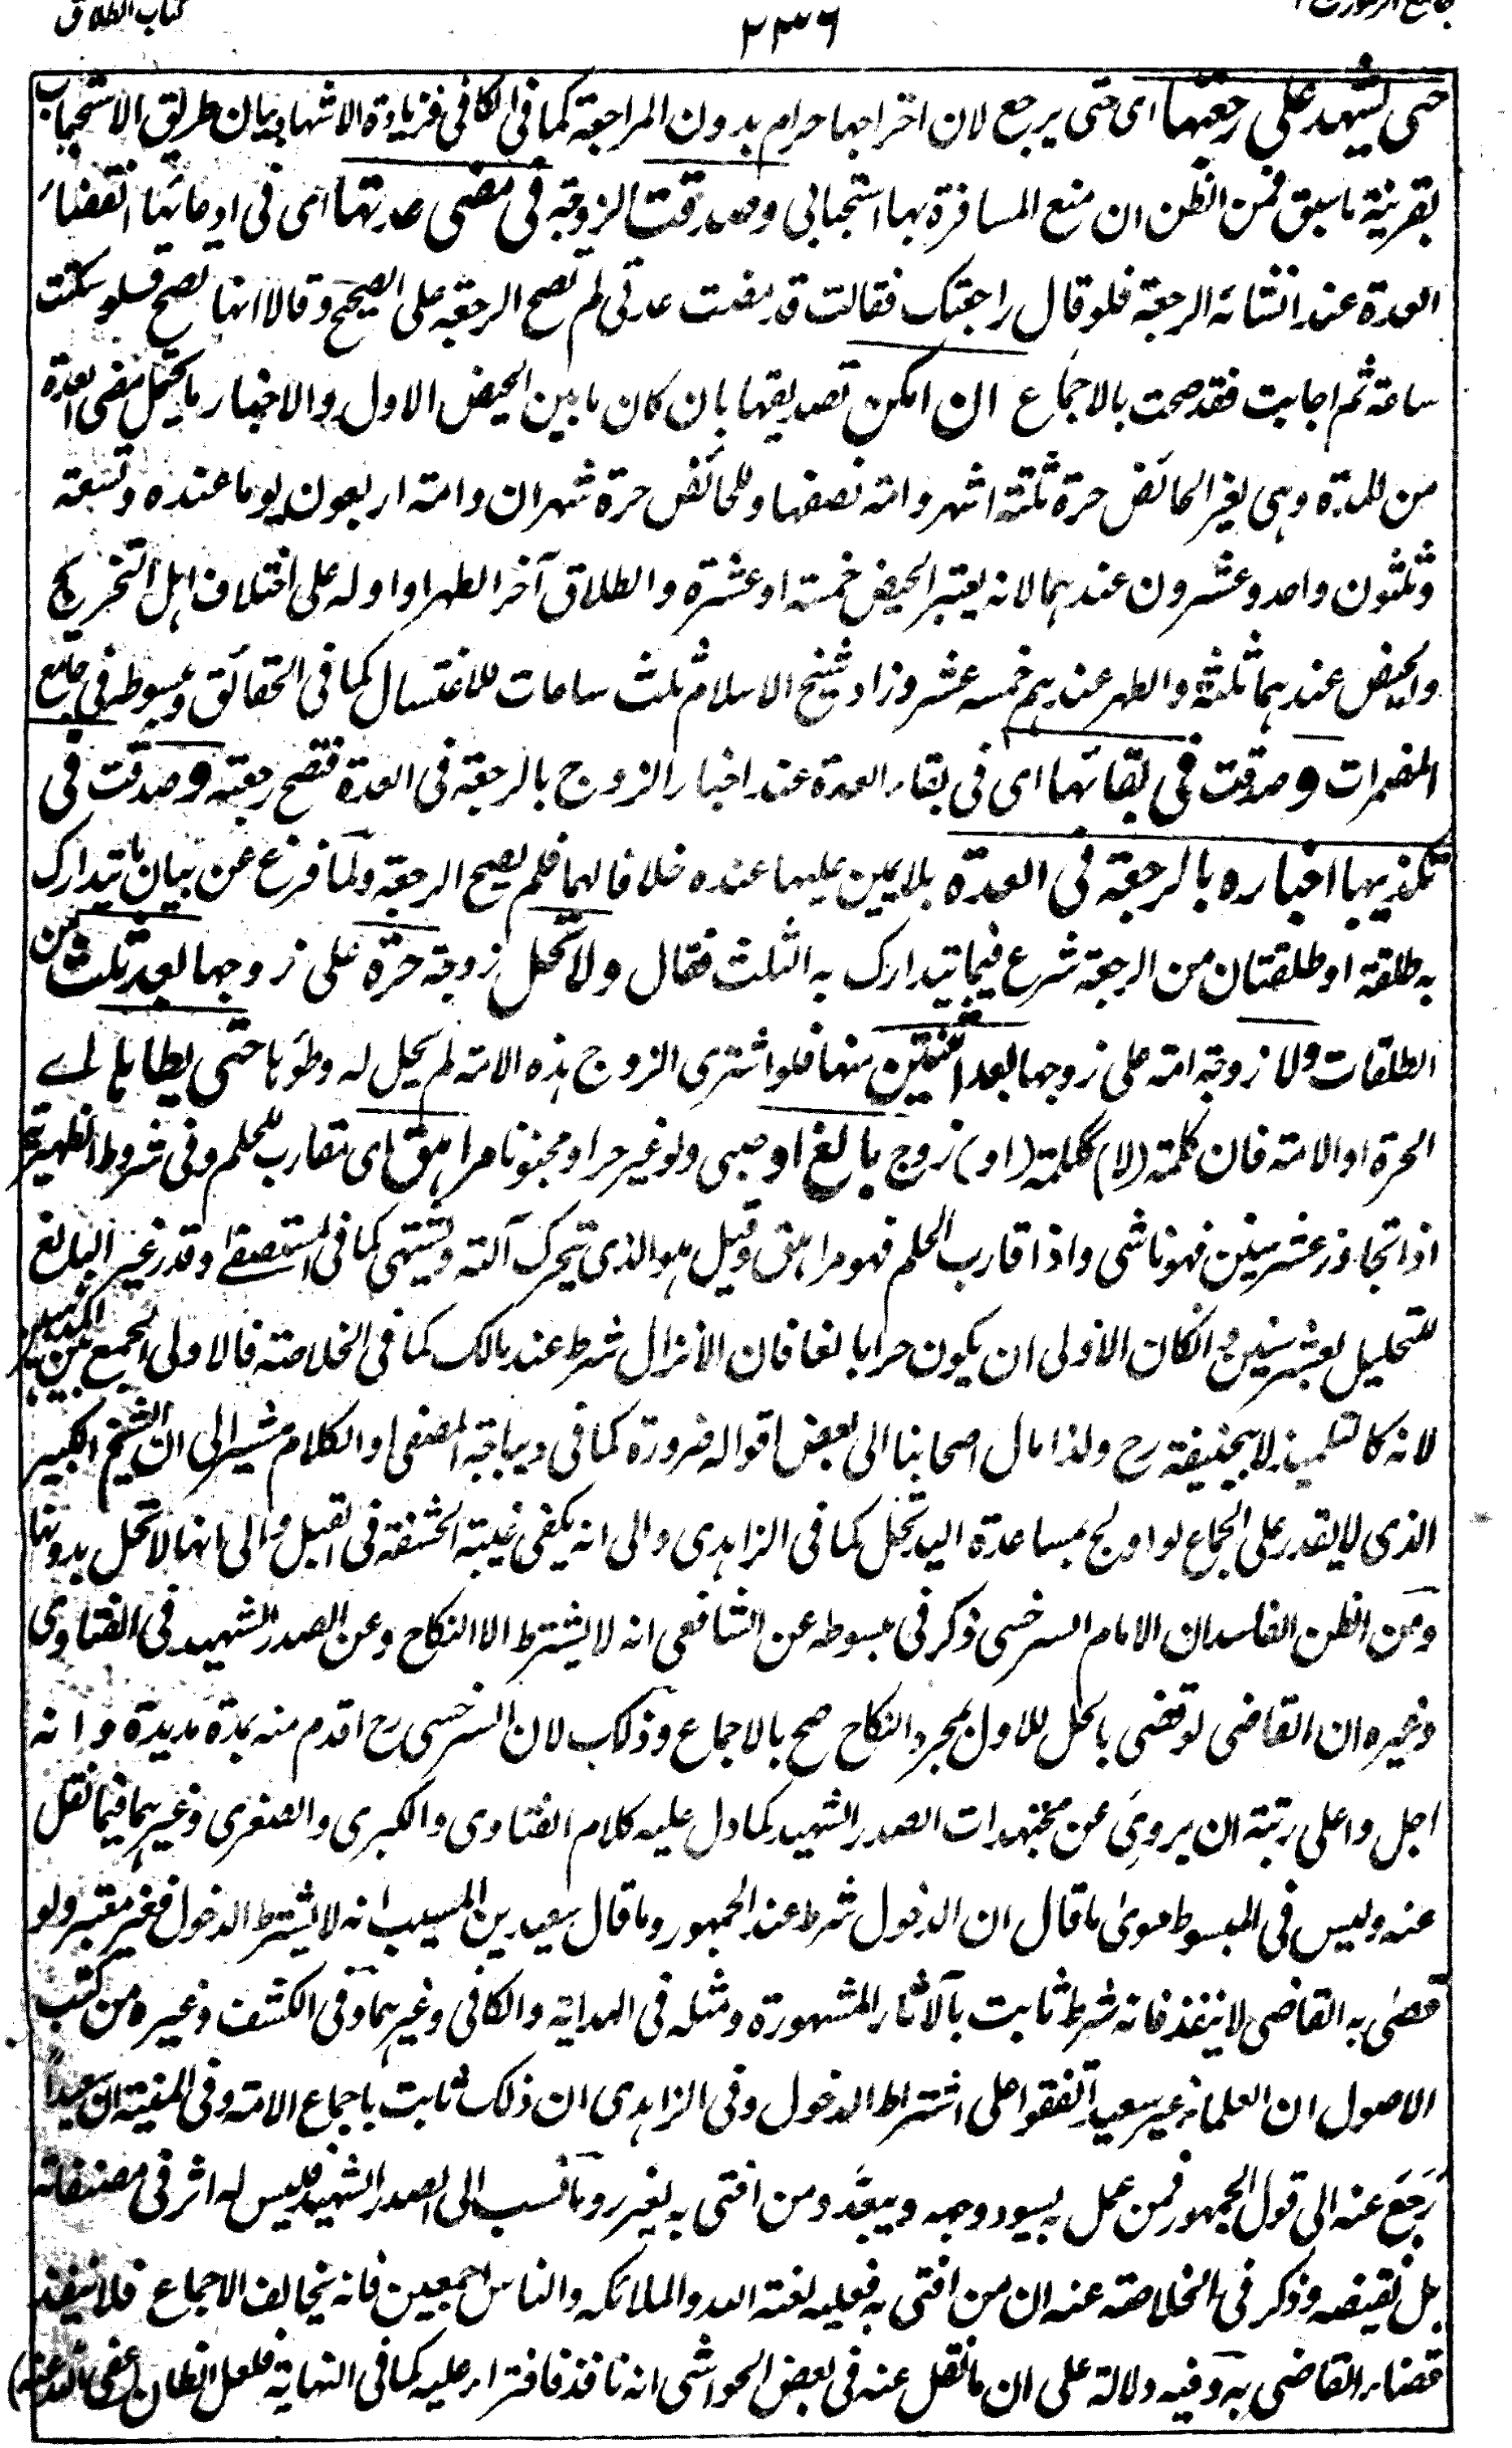 كتاب الطلاق
٢٣٦
جامع الرموز ج ١
حتى يشهد على رجعتها اى حتى يرجع لان اخراجها حرام بدون المراجعة كما فى الكافى فزيادة الاشهاد بيان طريق الاستحباب
بقرينة ما سبق فمن الظن ان منع المسافرة بها استحبابى وصدقت الزوجة فى مضى عدتها اى فى ادعائها انقضاء
العدة عند انشائه الرجعة فلو قال راجعتك فقالت قد مضت عدتى لم تصح الرجعة على الصحيح وقالا انها تصح فلو سكتت
ساعة ثم اجابت فقد صحت بالاجماع ان امكن تصديقها بان كان ما بين الحيض الاول والاخبار ما يحتمل مضى العدة
من المدة وهى لغير الحائض حرة ثلثة اشهر وامة نصفها وللحائض حرة شهران وامة اربعون يوما عنده وتسعة
وثلثون واحد وعشرون عندهما لانه يعتبر الحيض خمسة او عشرة والطلاق آخر الطهر او اوله على اختلاف اهل التخريج
والحيض عندهما ثلثة والطهر عندهم خمسة عشر وزاد شيخ الاسلام ثلث ساعات للاغتسال كما فى الحقائق وبسوطه فى جامع
المضمرات وصدقت فى بقائها اى فى بقاء العدة عند اخبار الزوج بالرجعة فى العدة فتصح رجعته وصدقت فى
تكذيبها اخباره بالرجعة فى العدة بلا يمين عليها عنده خلافا لهما فلم يصح الرجعة ولما فرغ عن بيان ما يتدارك
به طلقة او طلقتان من الرجعة شرع فيما يتدارك به الثلث فقال ولا تحل زوجة حرة على زوجها بعد ثلث من
الطلقات ولا زوجة امة على زوجها بعد اثنتين منها فلو اشترى الزوج هذه الامة لم يحل له وطؤها حتى يطاها اے
الحرة او الامة فان كلمة (لا) ككلمة (او) زوج بالغ او صبى ولو غير حر او مجنونا مراهق اى مقارب للحلم وفى شروط الظهيرية
اذا تجاوز عشر سنين فهو ناشى واذا قارب الحلم فهو مراهق وقيل هو الذى يتحرك آلته ويشتهى كما فى المستصفى وقدر غير البالغ
للتحليل بعشر سنين وانكان الاولى ان يكون حرا بالغا فان الانزال شرط عند مالك كما فى الخلاصة فالاولى الجمع بين المذهبين
لانه كالتلميذ لابيحنيفة رح ولذا مال اصحابنا الى بعض اقواله ضرورة كما فى ديباجة المصفى والكلام مشير الى ان الشيخ الكبير
الذى لا يقدر على الجماع لو اولج بمساعدة اليد تحل كما فى الزاهدى والى انه يكفى غيبة الحشفة فى القبل والى انها لا تحل بدونها
ومن الظن الفاسد ان الامام السرخسى ذكر فى مبسوطه عن الشافعى انه لا يشترط الا النكاح وعن الصدر الشهيد فى الفتاوى
وغيره ان القاضى لو قضى بالحل للاول بمجرد النكاح صح بالاجماع وذلك لان السرخسى رح اقدم منه بمدة مديدة وانه
اجل واعلى رتبة ان يروى عن مجتهدات الصدر الشهيد كما دل عليه كلام الفتاوى والكبرى والصغرى وغيرهما فيما نقل
عنه وليس فى المبسوط سوى ما قال ان الدخول شرط عند الجمهور وما قال سعيد بن المسيب انه لا يشترط الدخول فغير معتبر ولو
قضى به القاضى لا ينفذ فانه شرط ثابت بالآثار المشهورة ومثله فى الهداية والكافى وغيرهما وفى الكشف وغيره من كتب
الاصول ان العلماء غير سعيد اتفقوا على اشتراط الدخول وفى الزاهدى ان ذلك ثابت باجماع الامة وفى المنية ان سعيداً
رَجَعَ عنه الى قول الجمهور فمن عمل به يسود وجهه ويبعّد ومن افتى به يعزر وما نسب الى الصدر الشهيد فليس له اثر فى مصنفاته
بل نقيضه وذكر فى الخلاصة عنه ان من افتى به فعليه لعنة الله والملائكه والناس اجمعين فانه يخالف الاجماع فلا ينفذ
قضاء القاضى به وفيه دلالة على ان ما نقل عنه فى بعض الحواشى انه نافذ فافتراء عليه كما فى النهاية فلعل الظان (عفى الله عنه)